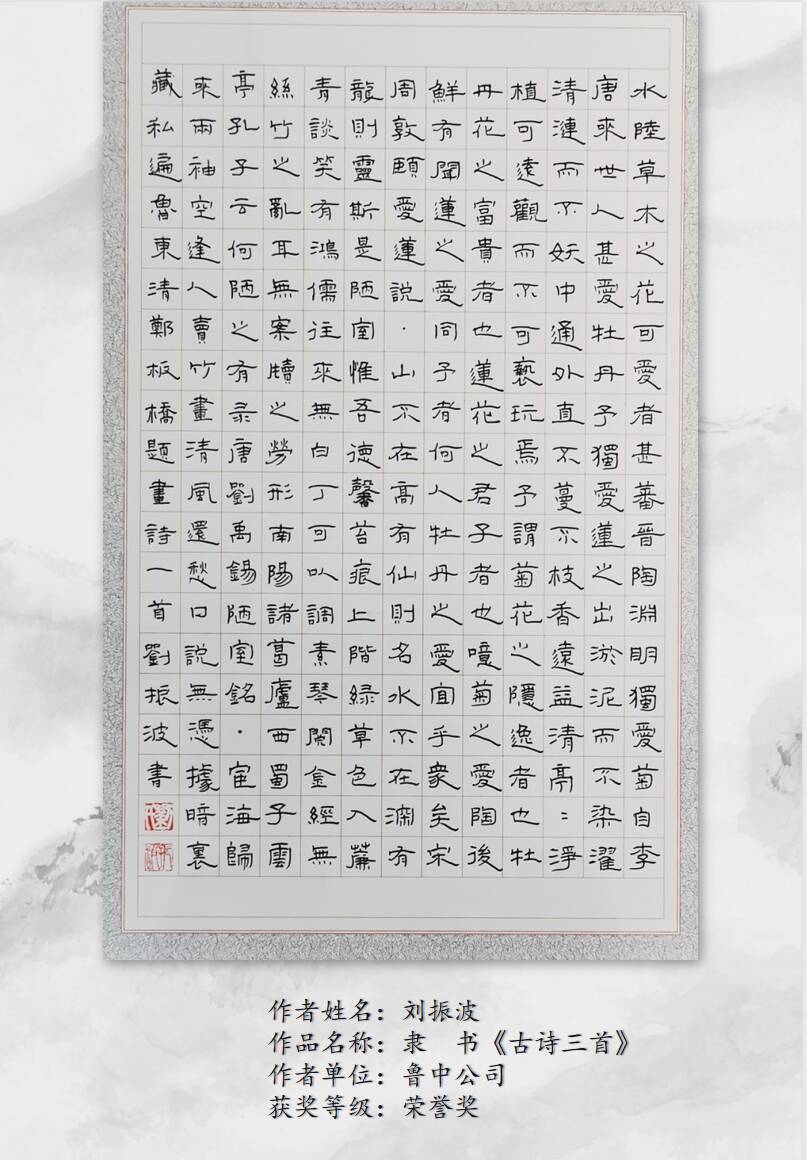 水陸草木之花可愛者甚蕃晉陶淵明獨愛菊自李
唐來世人甚愛牡丹予獨愛蓮之出淤泥而不染濯
清漣而不妖中通外直不蔓不枝香遠益清亭〻淨
植可遠觀而不可褻玩焉予謂菊花之隱逸者也牡
丹花之富貴者也蓮花之君子者也噫菊之愛陶後
鮮有聞蓮之愛同予者何人牡丹之愛宜乎衆矣宋
周敦頤愛蓮說·山不在高有仙則名水不在深有
龍則靈斯是陋室惟吾德馨苔痕上階綠草色入簾
青談笑有鴻儒往來無白丁可以調素琴閱金經無
絲竹之亂耳無案牘之勞形南陽諸葛廬西蜀子雲
亭孔子云何陋之有录唐劉禹錫陋室銘·宦海歸
來兩袖空逢人賣竹畫清風還愁口說無憑據暗裏
藏私遍魯東清鄭板橋題畫詩一首劉振波書
作者姓名：刘振波
作品名称：隶 书《古诗三首》
作者单位：鲁中公司
获奖等级：荣誉奖